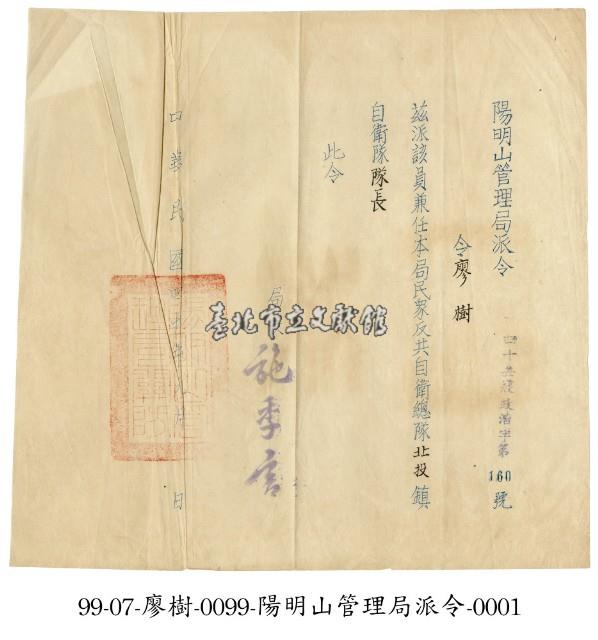 陽明山管理局派令
政治字第160號
令廖樹
茲派該員兼任本局民眾反共自衛總隊北投鎮
自衛隊隊長
此令
局
施季言
華民國四十年 月 日
臺北市立文獻館
99-07-廖樹-0099-陽明山管理局派令-0001